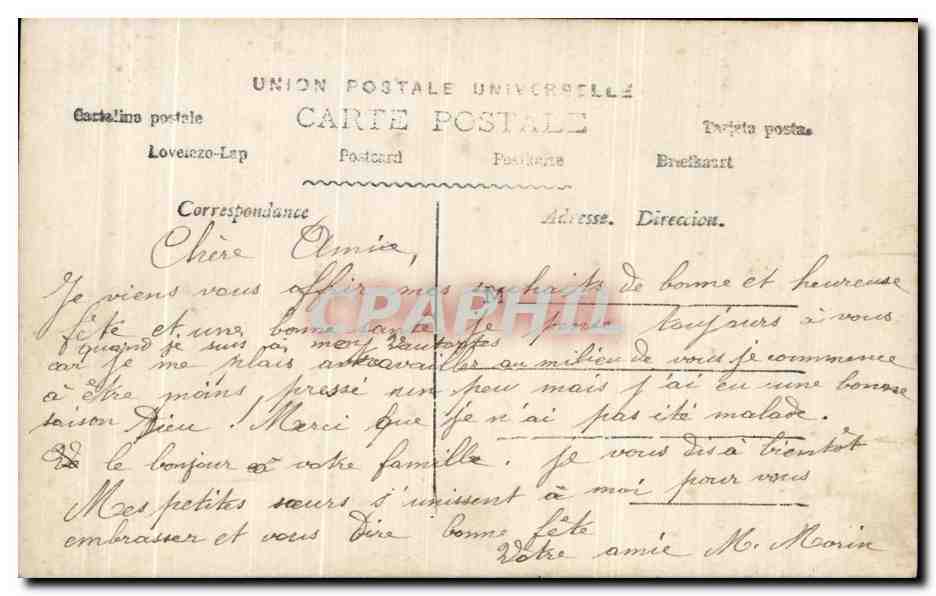 UNION POSTALE UNIVERSELLE
CARTE POSTALE
Cartolina postale
Tarjeta postal
Levelezo-Lap Postcard Postkarte Briefkaart
Correspondance
Adresse. Direccion.
M
CPAPHIL
Chère Amie,
Je viens vous offrir mes souhaits de bonne et heureuse
fête et une bonne santé je pense toujours à vous
quand je suis à mon
car je me plais à travailler au milieu de vous je commence
à être moins pressé un peu mais j'ai eu une bonne
saison Dieu! Merci que je n'ai pas été malade.
le bonjour à votre famille. je vous dis à bientôt
Mes petites sœurs s'unissent à moi pour vous
embrasser et vous Dire bonne fête
Votre amie M. Morin